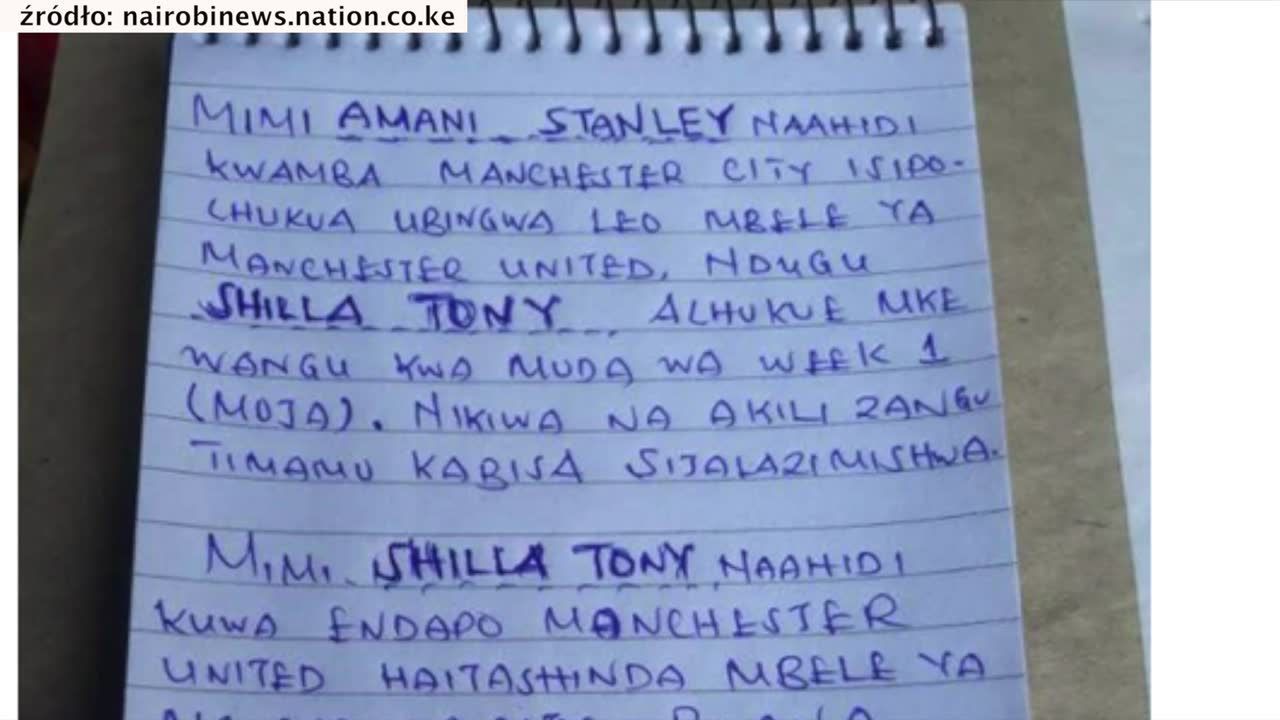 źródło: nairobinews.nation.co.ke
MIMI AMANI STANLEY NAAHIDI
KWAMBA MANCHESTER CITY ISIPO-
CHUKUA UBINGWA LEO MBELE YA
MANCHESTER UNITED, NDUGU
SHILLA TONY ACHUKUE MKE
WANGU KWA MUDA WA WEEK 1
(MOJA). NIKIWA NA AKILI ZANGU
TIMAMU KABISA SIJALAZIMISHWA.
MIMI SHILLA TONY NAAHIDI
KUWA ENDAPO MANCHESTER
UNITED HAITASHINDA MBELE YA